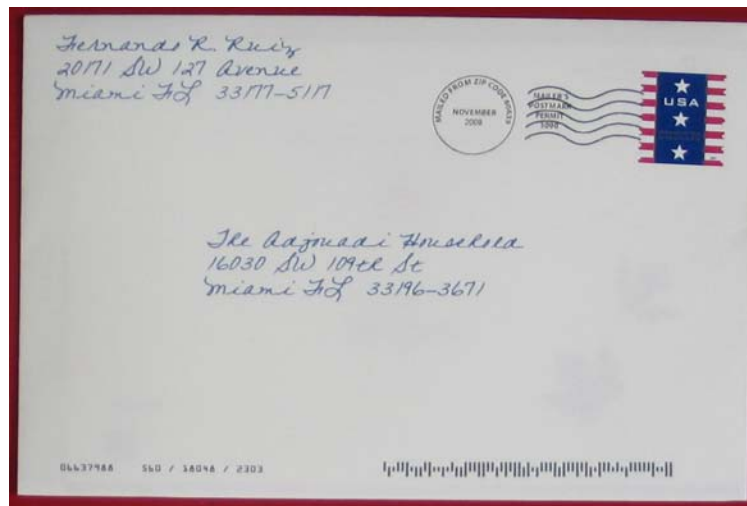 Fernando R. Ruiz
20171 SW 127 Avenue
Miami FL 33177-5117
MAILED FROM ZIP CODE
NOVEMBER
2008
MAILER'S
POSTMARK
PERMIT
USA
The Adjouadi Household
16030 SW 109th St
Miami FL 33196-3671
06637988 560 / 18048 / 2303